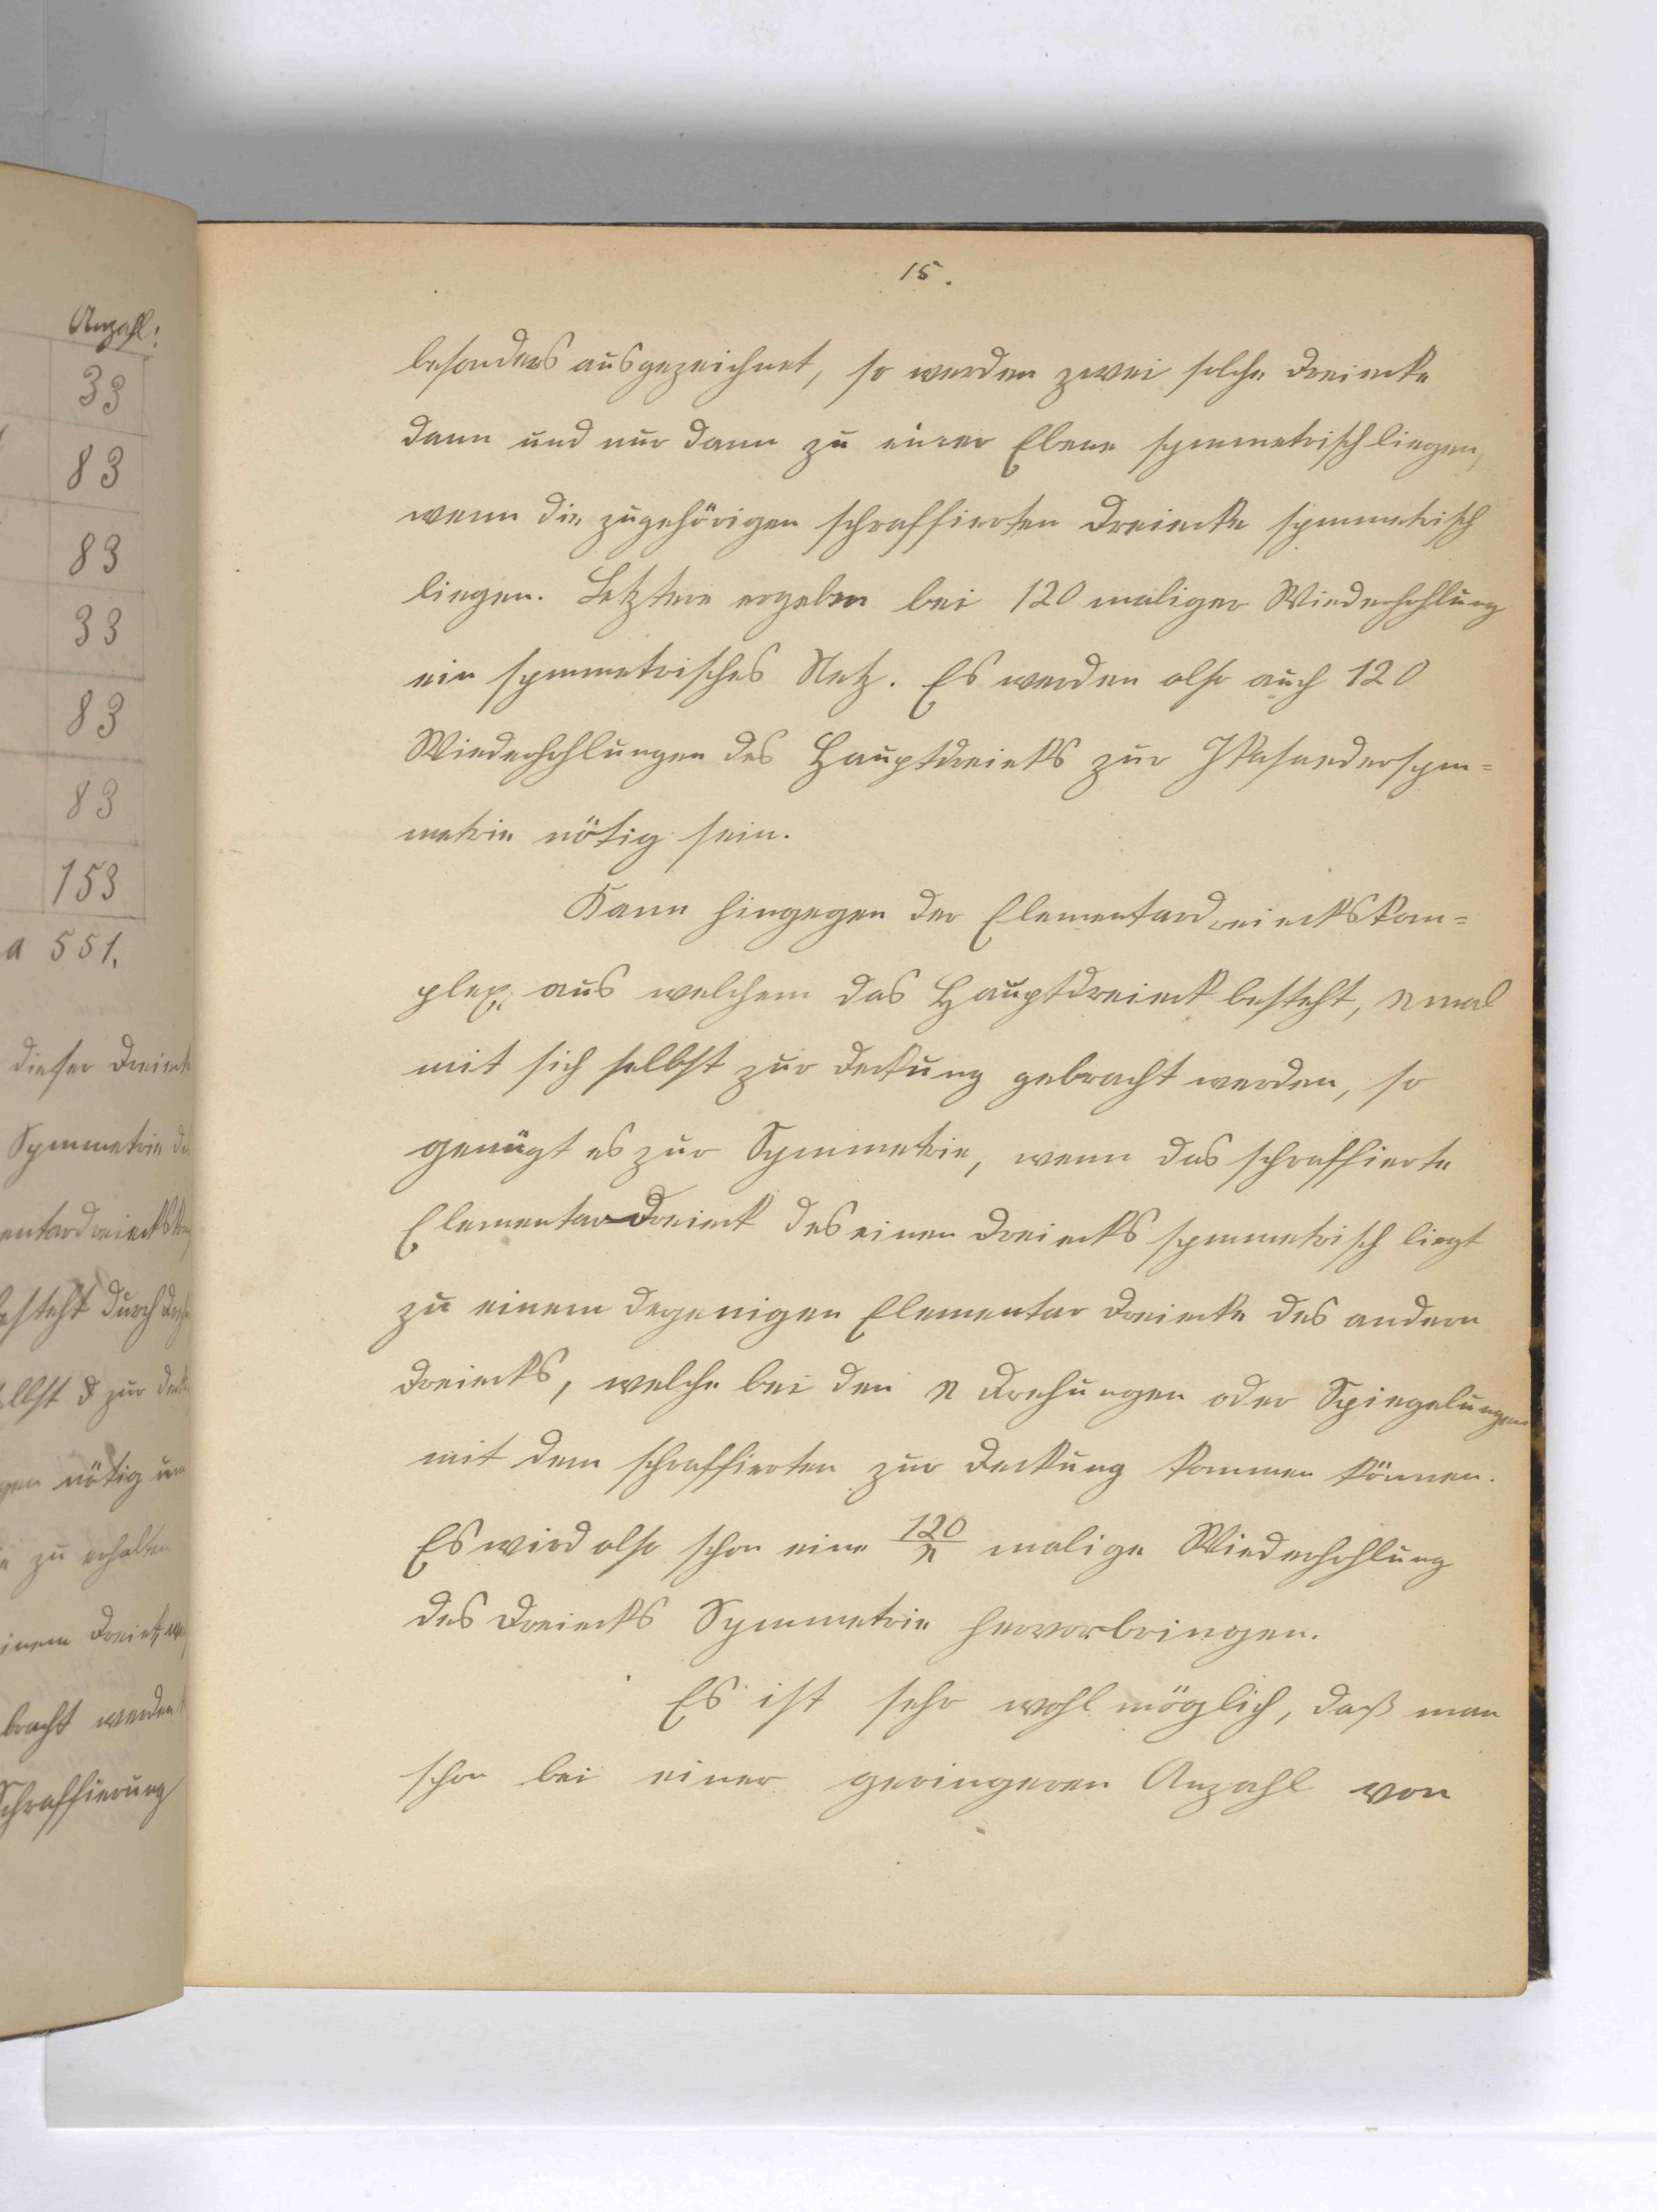 Anzahl:
33
83
83
33
83
83
153
a 551.
dieser Dreiecke
Symmetrie
besteht durch
elbst zur
nötig um
zu erhalten
inem Dreieck
bracht werden
Schraffierung
15.
besonders ausgezeichnet, so werden zwei solche Dreiecke
dann und nur dann zu einer Ebene symmetrisch liegen,
wenn die zugehörigen schraffierten Dreiecke symmetrisch
liegen. Letztere ergeben bei 120 maliger Wiederhohlung
ein symmetrisches Netz. Es werden also auch 120
Wiederhohlungen des Hauptdreiecks zur Ikosaedersym=
metrie nötig sein.
Kann hingegen der Elementardreieckskom=
plex, aus welchem das Hauptdreieck besteht, n mal
mit sich selbst zur Deckung gebracht werden, so
genügt es zur Symmetrie, wenn das schraffierte
Elementar-Dreieck des einen Dreiecks symmetrisch liegt
zu einem degenigen Elementar Dreiecke des andern
Dreiecks, welche bei den n Drehungen oder Spiegelungen
mit dem schraffierten zur Deckung kommen können.
Es wird also schon eine 120/n malige Wiederhohlung
des Dreiecks Symmetrie hervorbringen.
Es ist sehr wohl möglich, daß man
schon bei einer geringeren Anzahl von